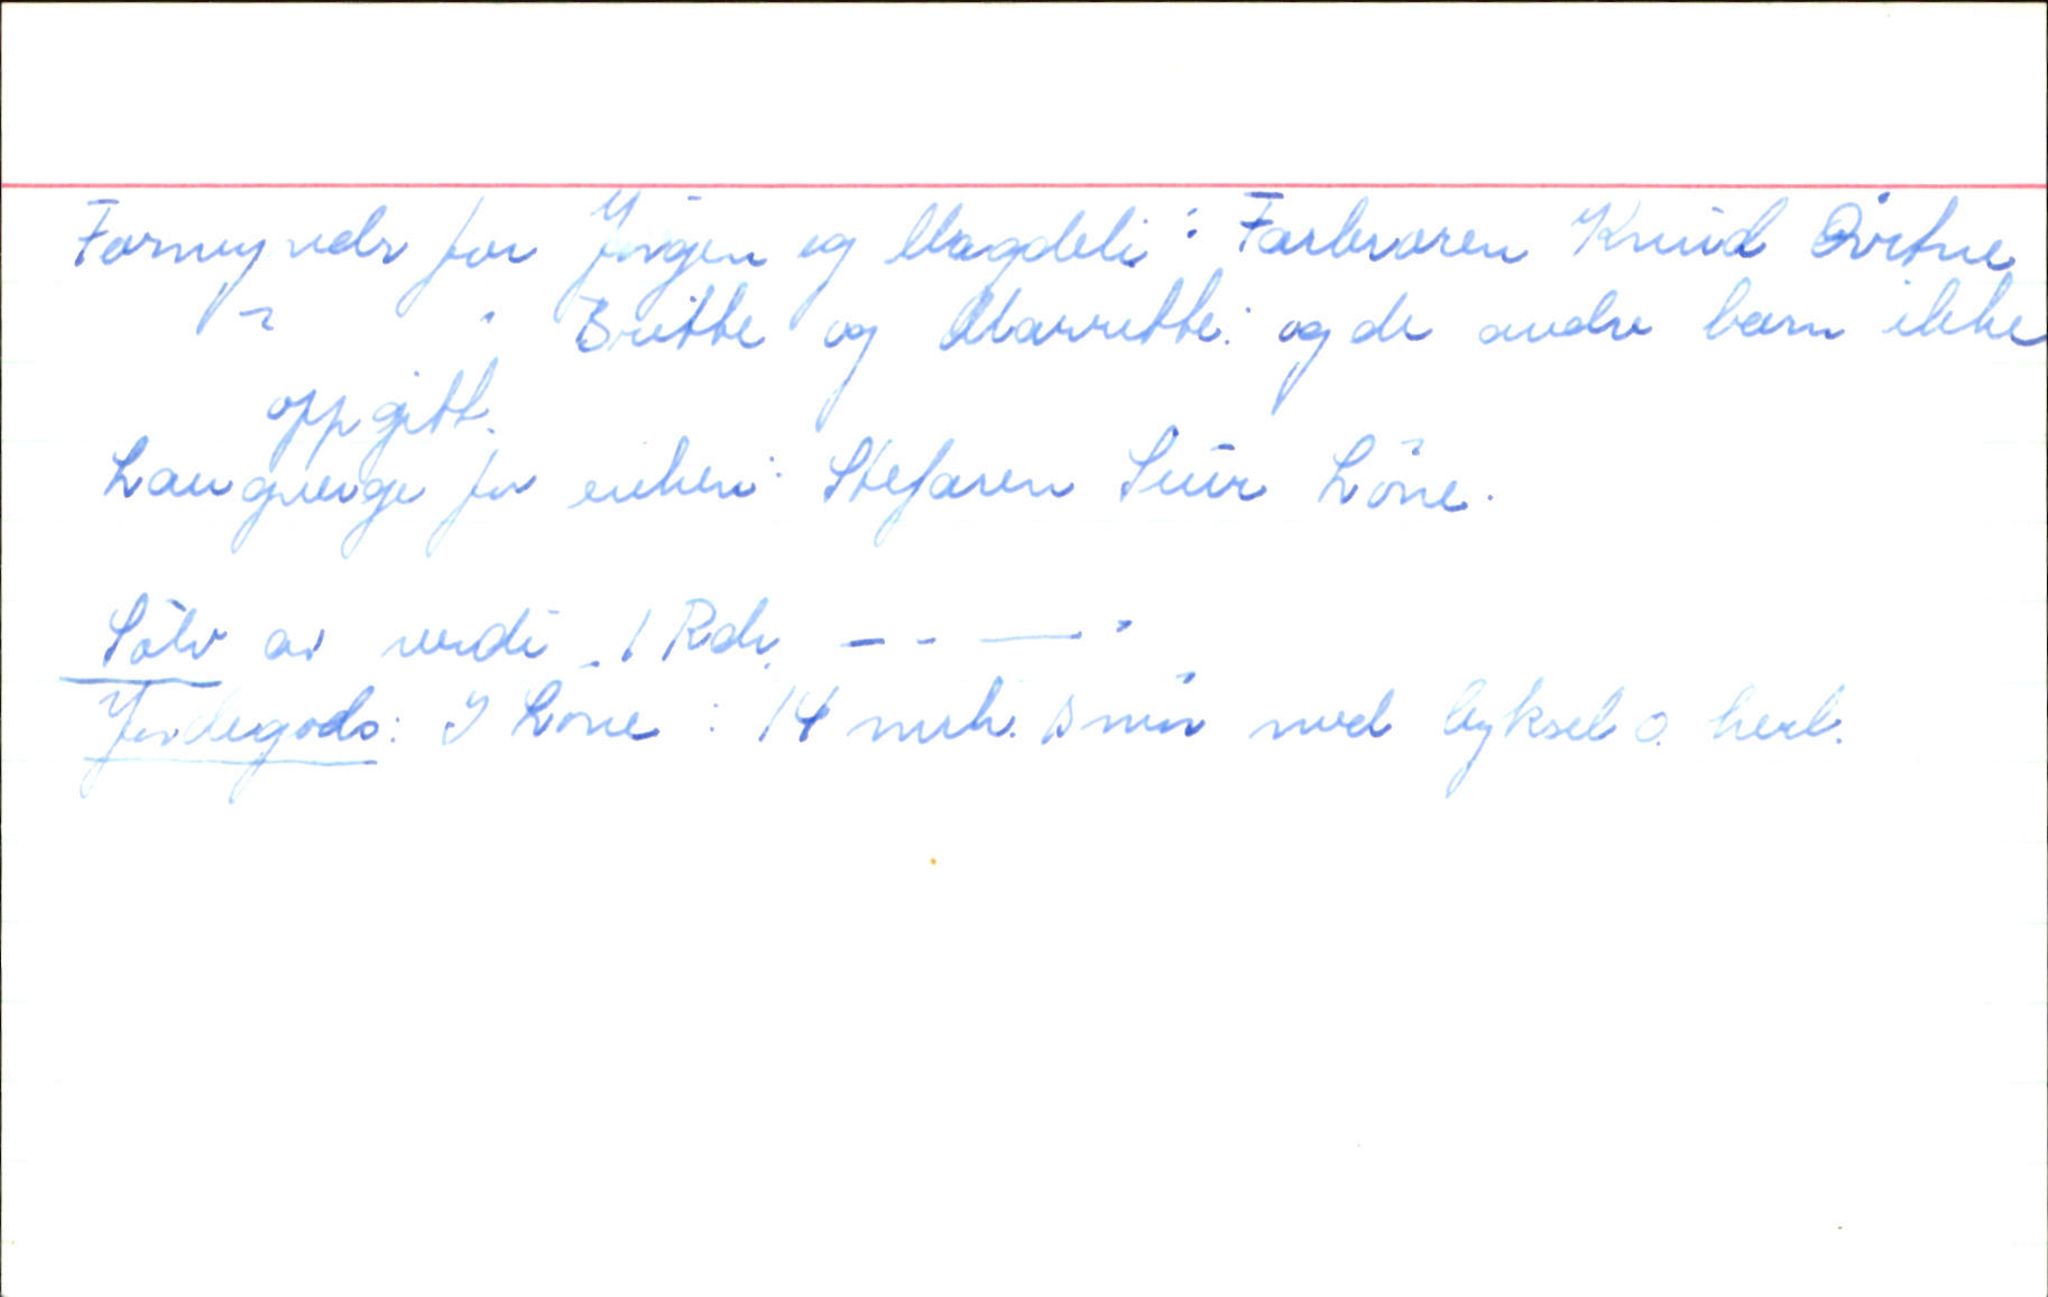 Formynder for Jørgen og Magdeli: Farbroren Knud Qvitne
" " Britte og Marritte: og de andre barn ikke
oppgitt.
Laugverge for enken: Stefaren Siur Løne.
Sølv av verdi 1 Rdr. - - — "
Jordegods: I Løne: 14 mrk. smør med byksel o. herl.